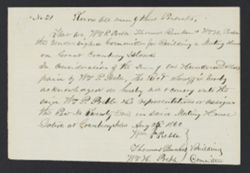 No 21 Know all men by these Presents,
that we, Wm P. Preble, Thomas Bunker & Wm H. Preble
the undersigned Committee for Building a Meeting House
on Great Cranberry Island
In consideration of the Sum of One Hundred Dollars
paid by Wm P. Preble, the receipt whereof is hereby
acknowledged do hereby sell & convey unto the
said Wm P. Preble his representatives or assigns
the Pew No Twenty One in said Meeting House
Dated at Cranberry Isles Aug
Wm P Preble
Thomas Bunker Building
Wm H. Preble Committee